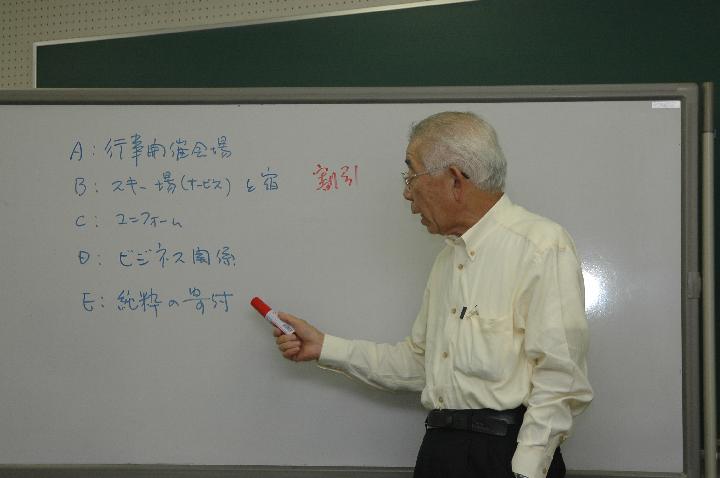 A: 行事開催会場
B: スキー場(サービス)と宿 割引
C: ユニフォーム
D: ビジネス関係
E: 純粋の寄付